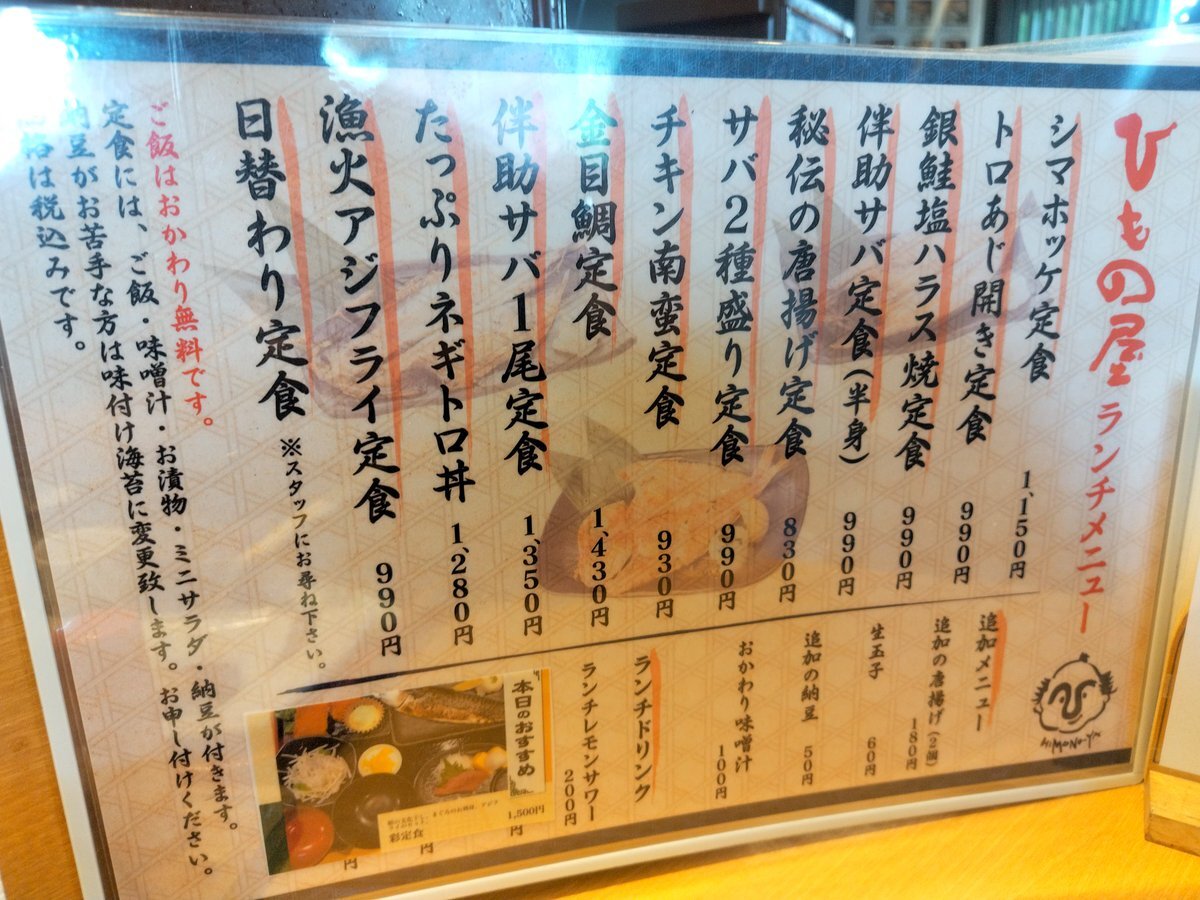 ひもの屋 ランチメニュー
シマホッケ定食 1,150円
トロあじ開き定食 990円
銀鮭塩ハラス焼定食 990円
伴助サバ定食(半身) 990円
秘伝の唐揚げ定食 830円
サバ2種盛り定食 990円
チキン南蛮定食 930円
金目鯛定食 1,430円
伴助サバ1尾定食 1,350円
たっぷりネギトロ丼 1,280円
漁火アジフライ定食 990円
日替わり定食 ※スタッフにお尋ね下さい。
ご飯はおかわり無料です。
定食には、ご飯・味噌汁・お漬物・ミニサラダ・納豆が付きます。
納豆がお苦手な方は味付け海苔に変更致します。お申し付けください。
は税込みです。
HIMONO-YA
追加メニュー
追加の唐揚げ(2個) 180円
生玉子 60円
追加の納豆 50円
おかわり味噌汁 100円
ランチドリンク
ランチレモンサワー 200円
円
円
円
本日のおすすめ
彩定食 1,500円